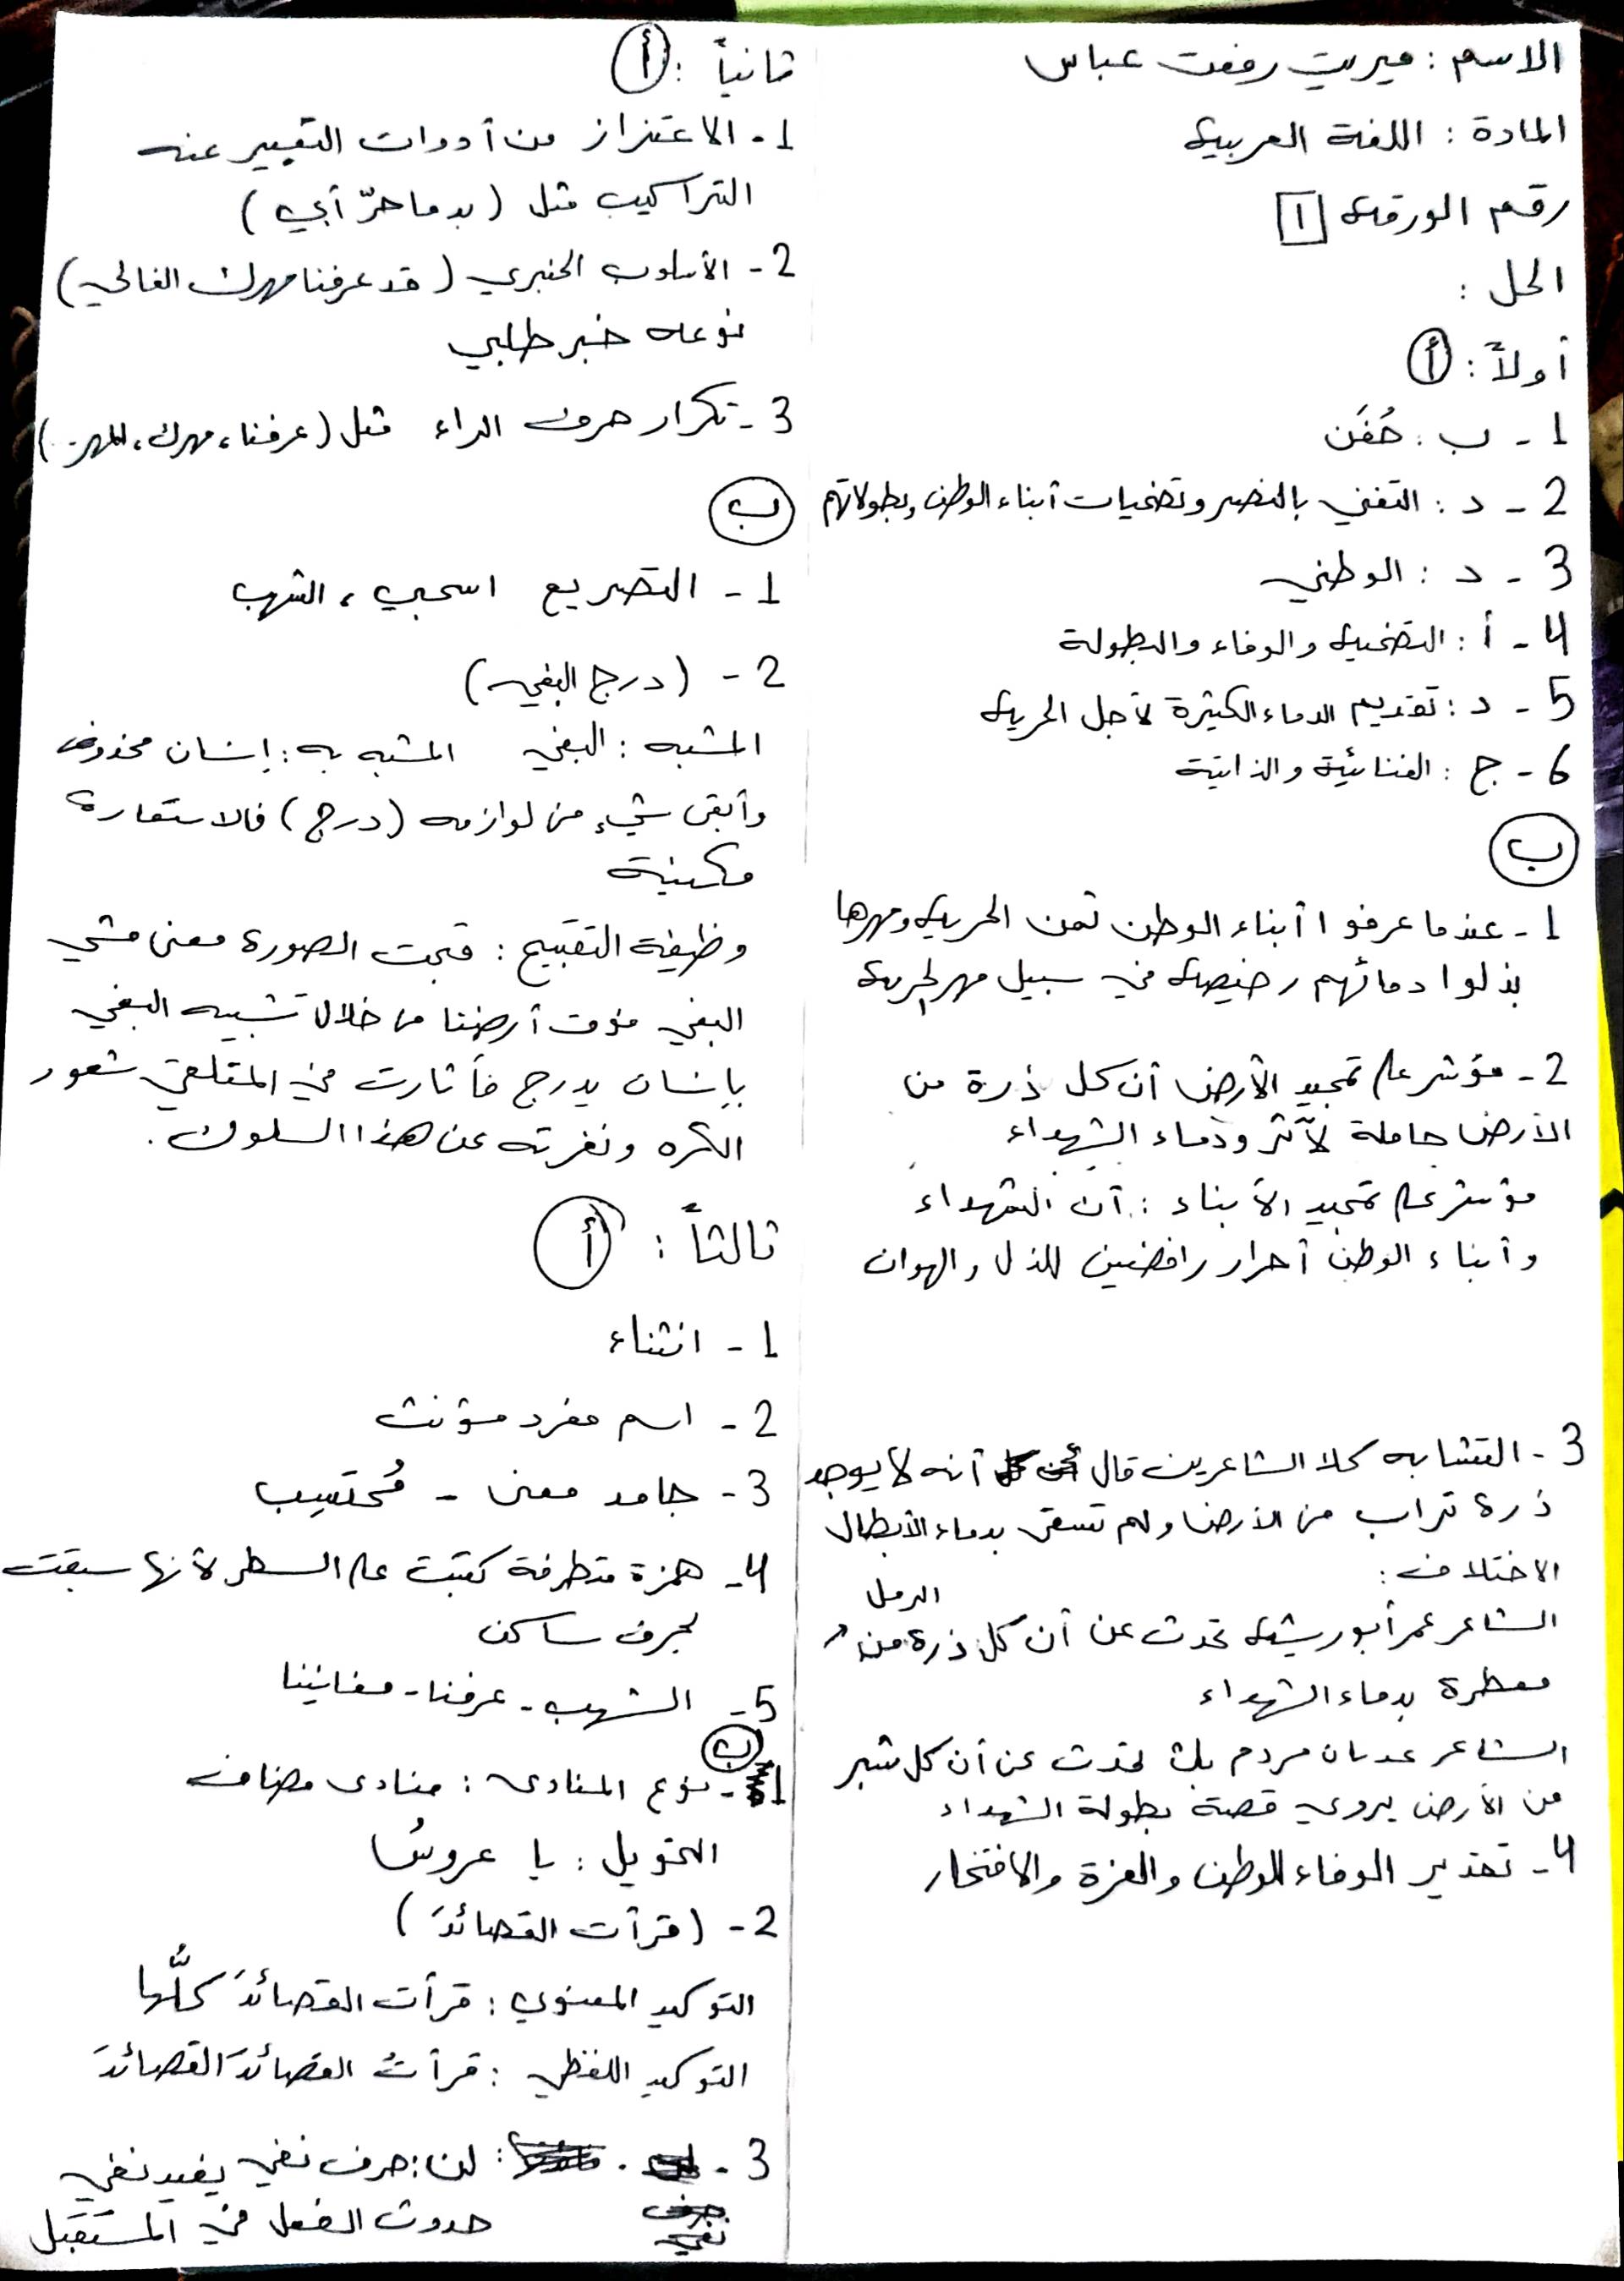 الاسم : ميريت رفعت عباس
المادة : اللغة العربية
رقم الورقة 1
الحل :
أولاً : أ
1 - ب : حُفَن
2 - د : التغني بالنصر وتضحيات أبناء الوطن وبطولاتهم
3 - د : الوطني
4 - أ : التضحية والوفاء والبطولة
5 - د : تقديم الدماء الكثيرة لأجل الحرية
6 - ج : الغنائية والذاتية
ب
1 - عندما عرفوا أبناء الوطن ثمن الحرية ومهرها
بذلوا دمائهم رخيصة في سبيل مهر الحرية
2 - مؤشر على تمجيد الأرض أن كل ذرة من
الأرض حاملة لأثر ودماء الشهداء
مؤشر على تمجيد الأبناء : أن الشهداء
وأبناء الوطن أحرار رافضين للذل والهوان
3 - التشابه كلا الشاعرين قال أنه لا يوجد
ذرة تراب من الأرض ولم تسقى بدماء الأبطال
الاختلاف :
الشاعر عمر أبو ريشة تحدث عن أن كل ذرة من الرمل
معطرة بدماء الشهداء
الشاعر عدنان مردم بك تحدث عن أن كل شبر
من الأرض يروي قصة بطولة الشهداء
4 - تقدير الوفاء للوطن والعزة والافتخار
ثانياً : أ
1 - الاعتزاز من أدوات التعبير عنه
التراكيب مثل (بدما حرّ أبي)
2 - الأسلوب الخبري (قد عرفنا مهرك الغالي)
نوعه خبر طلبي
3 - تكرار حرف الراء مثل (عرفنا، مهرك، المهر)
ب
1 - التصريع اسحبي ، الشهب
2 - (درج البغي)
المشبه : البغي المشبه به : إنسان محذوف
وأبقى شيء من لوازمه (درج) فالاستعارة
مكنية
وظيفة التقبيح : قبحت الصورة معنى مشي
البغي فوق أرضنا من خلال تشبيه البغي
بإنسان يدرج فأثارت في المتلقي شعور
الكره ونفرته عن هذا السلوك .
ثالثاً : أ
1 - انثناء
2 - اسم مفرد مؤنث
3 - جامد معنى - مُحتَسِب
4 - همزة متطرفة كتبت على السطر لأنها سبقت
بحرف ساكن
5 - الشهب - عرفنا - مغانينا
ب
1 - نوع المنادى : منادى مضاف
التحويل : يا عروسُ
2 - (قرأت القصائدَ)
التوكيد المعنوي : قرأت القصائدَ كلَّها
التوكيد اللفظي : قرأتُ القصائدَ القصائدَ
3 - لن : حرف نفي يفيد نفي
حدوث الفعل في المستقبل